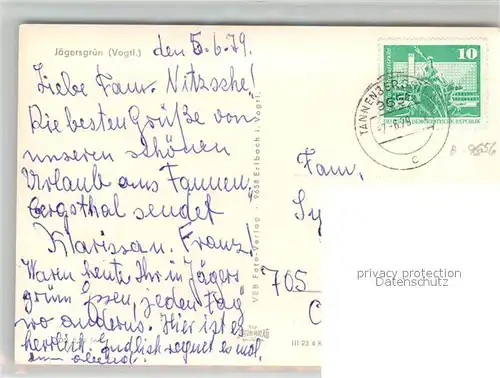 Jägersgrün (Vogtl.)
den 5.6.79.
Liebe Fam. Nitzsche!
Die besten Grüße von
unseren schönen
Urlaub aus Tannen,
bergsthal sendet
Klarissa u. Franz!
Waren heute Ihr in Jägers
grün Essen, jeden Tag
wo anderns. Hier ist es
herrlich. Endlich regnet es mal.
VEB Foto-Verlag · 9658 Erlbach i. Vogtl.
III 23 4
10
DEUTSCHE DEMOKRATISCHE REPUBLIK
TANNENBERGS
-7.-6.79
c
Fam.
Sy
705
privacy protection
Datenschutz